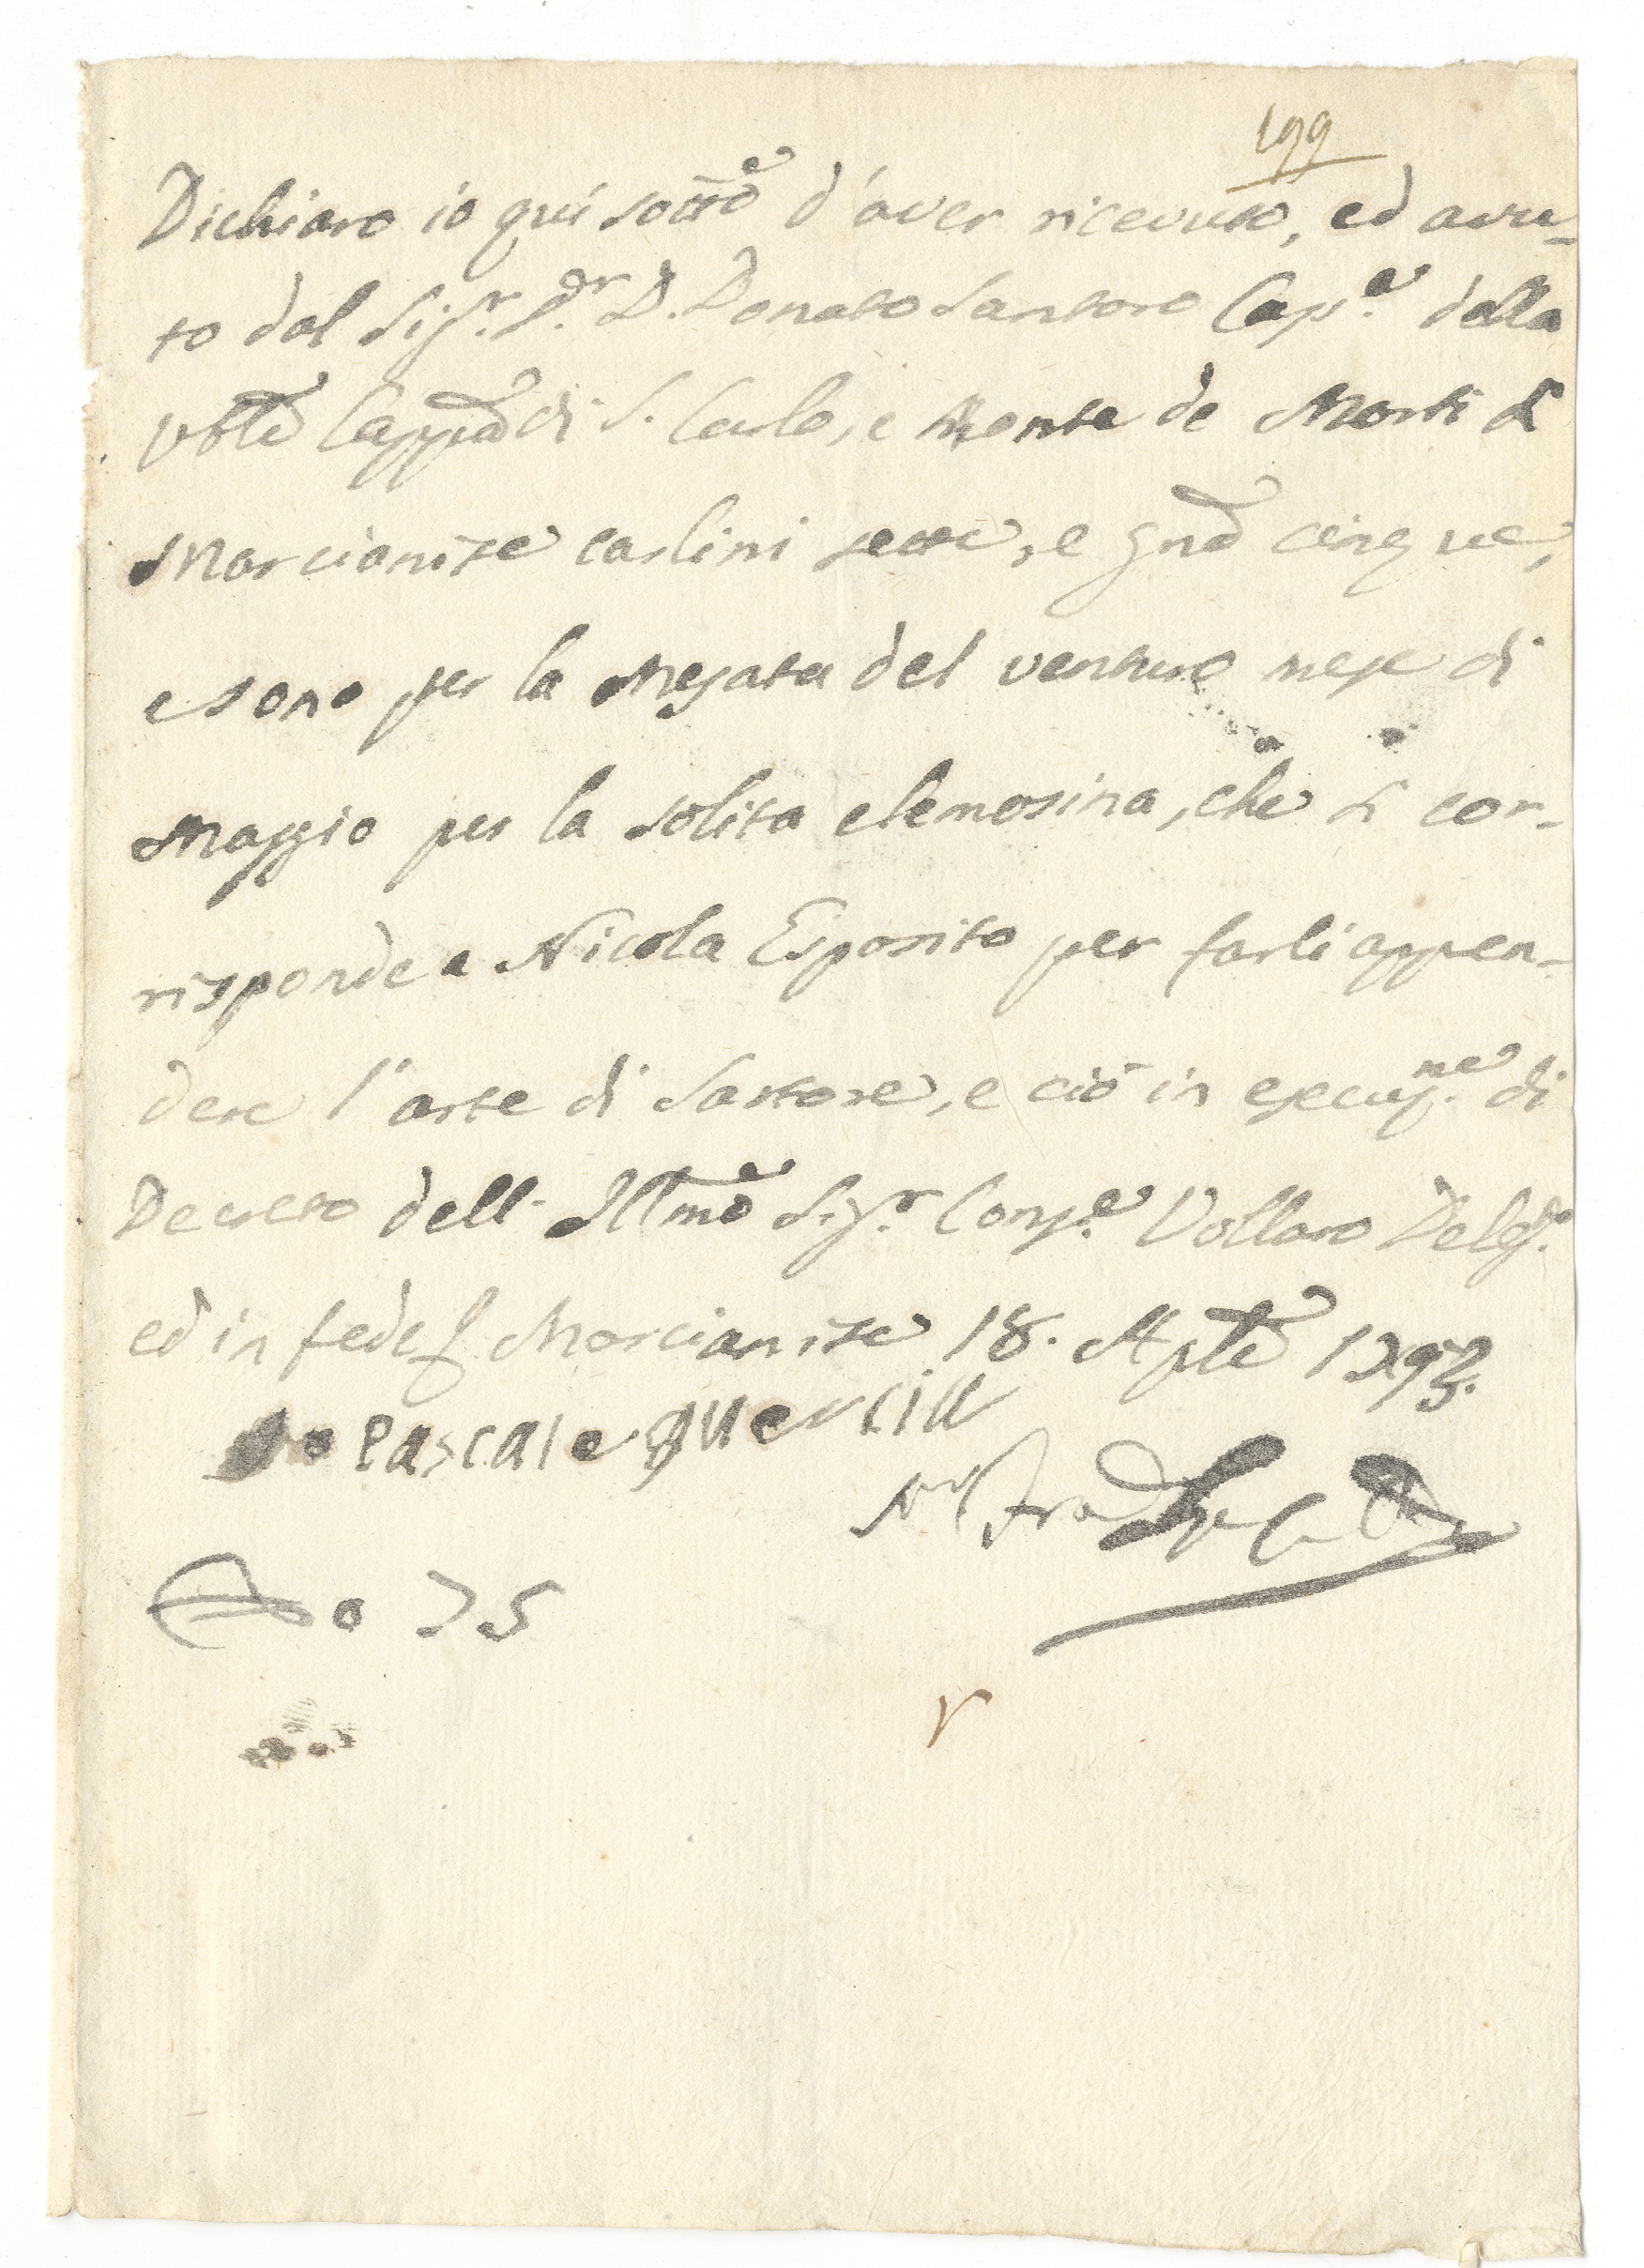 199
Dichiaro io qui sotto d'aver ricevuto, ed avu-
to dal Sig.r D.r D. Donato Santoro Cap.e della
Vble Cappa di S. Carlo, e Monte de Morti di
Marcianise carlini sette, e gna cinque,
e sono per la Mesata del venturo mese di
Maggio per la solita elemosina, che si cor-
risponde a Nicola Esposito per farli appen-
dere l'arte di Sartore, e ciò in esecuz.ne di
Decreto dell. Illmo Sig.r Cons.e Vollaro Deleg.to
ed in fede Marcianise 18. Aple 1793.
Io Pascale quercill
o 75